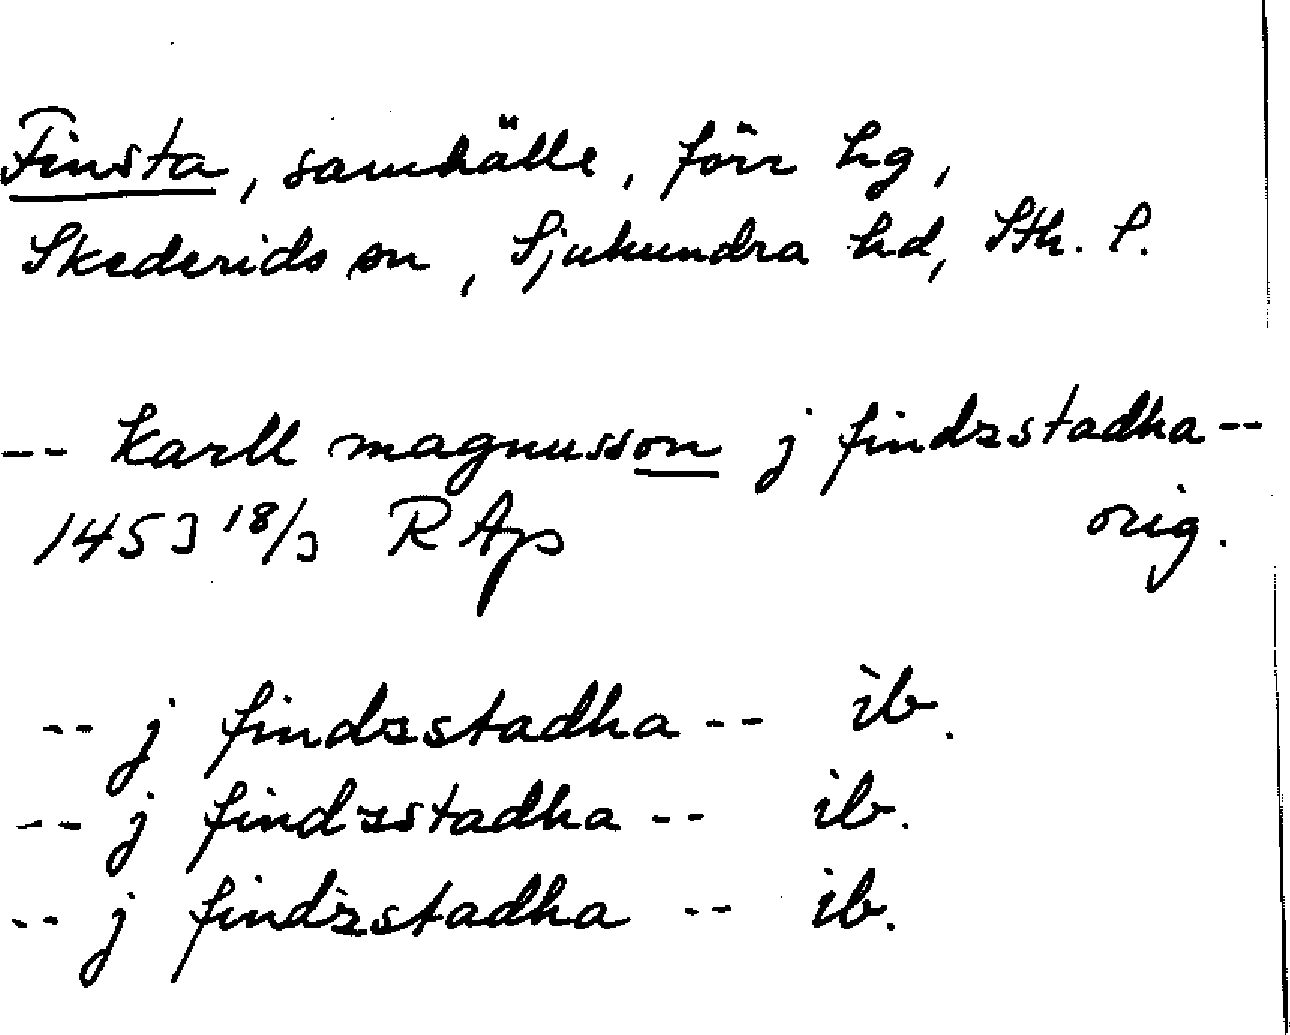 Finsta, samhälle, förr hg,
Skederids sn, Sjuhundra hd, Sth. l.
-- Karll magnusson j findzstadha --
1453 18/3 RAp orig.
-- j findzsstadha -- ib.
-- j findzstadha -- ib.
-- j findzstadha -- ib.